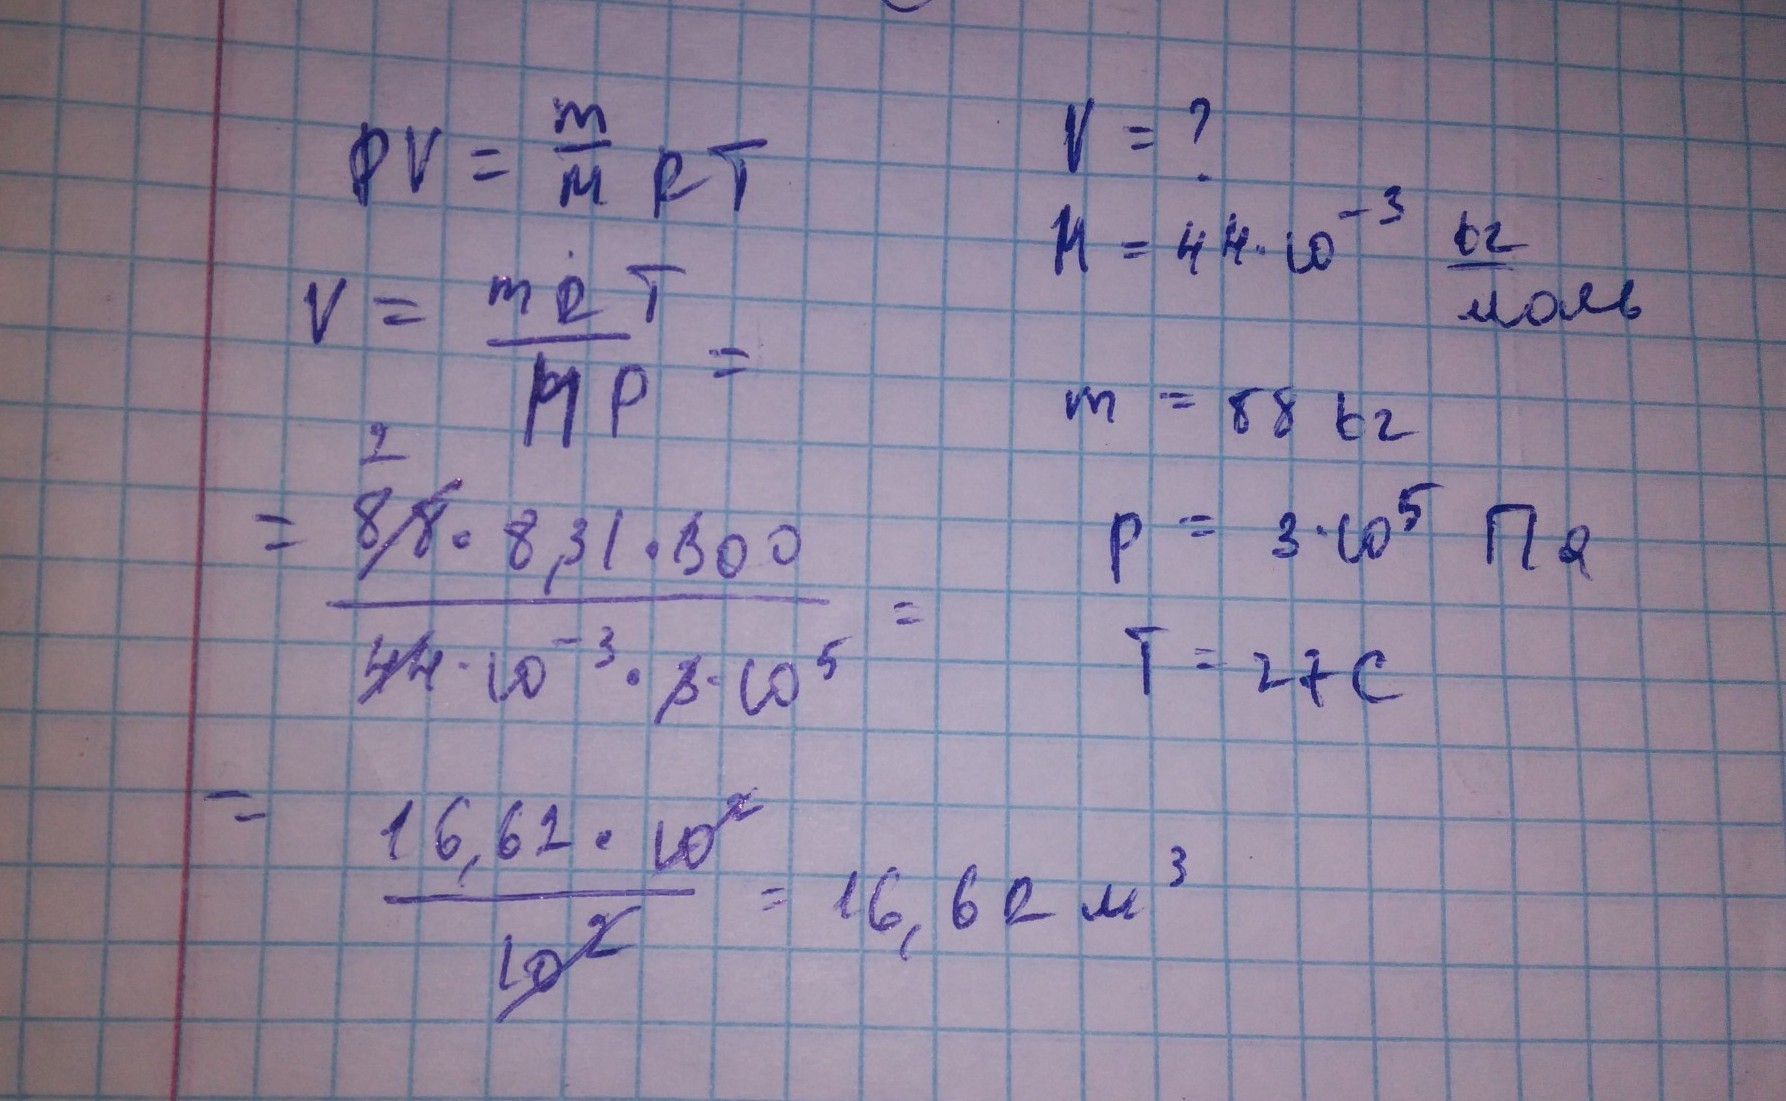 PV = m/M RT
V = mRT/MP =
2
= 88 · 8,31 · 300 / 44 · 10⁻³ · 3 · 10⁵ =
= 16,62 · 10² / 10² = 16,62 м³
V = ?
M = 44 · 10⁻³ кг/моль
m = 88 кг
P = 3 · 10⁵ Па
T = 27 C